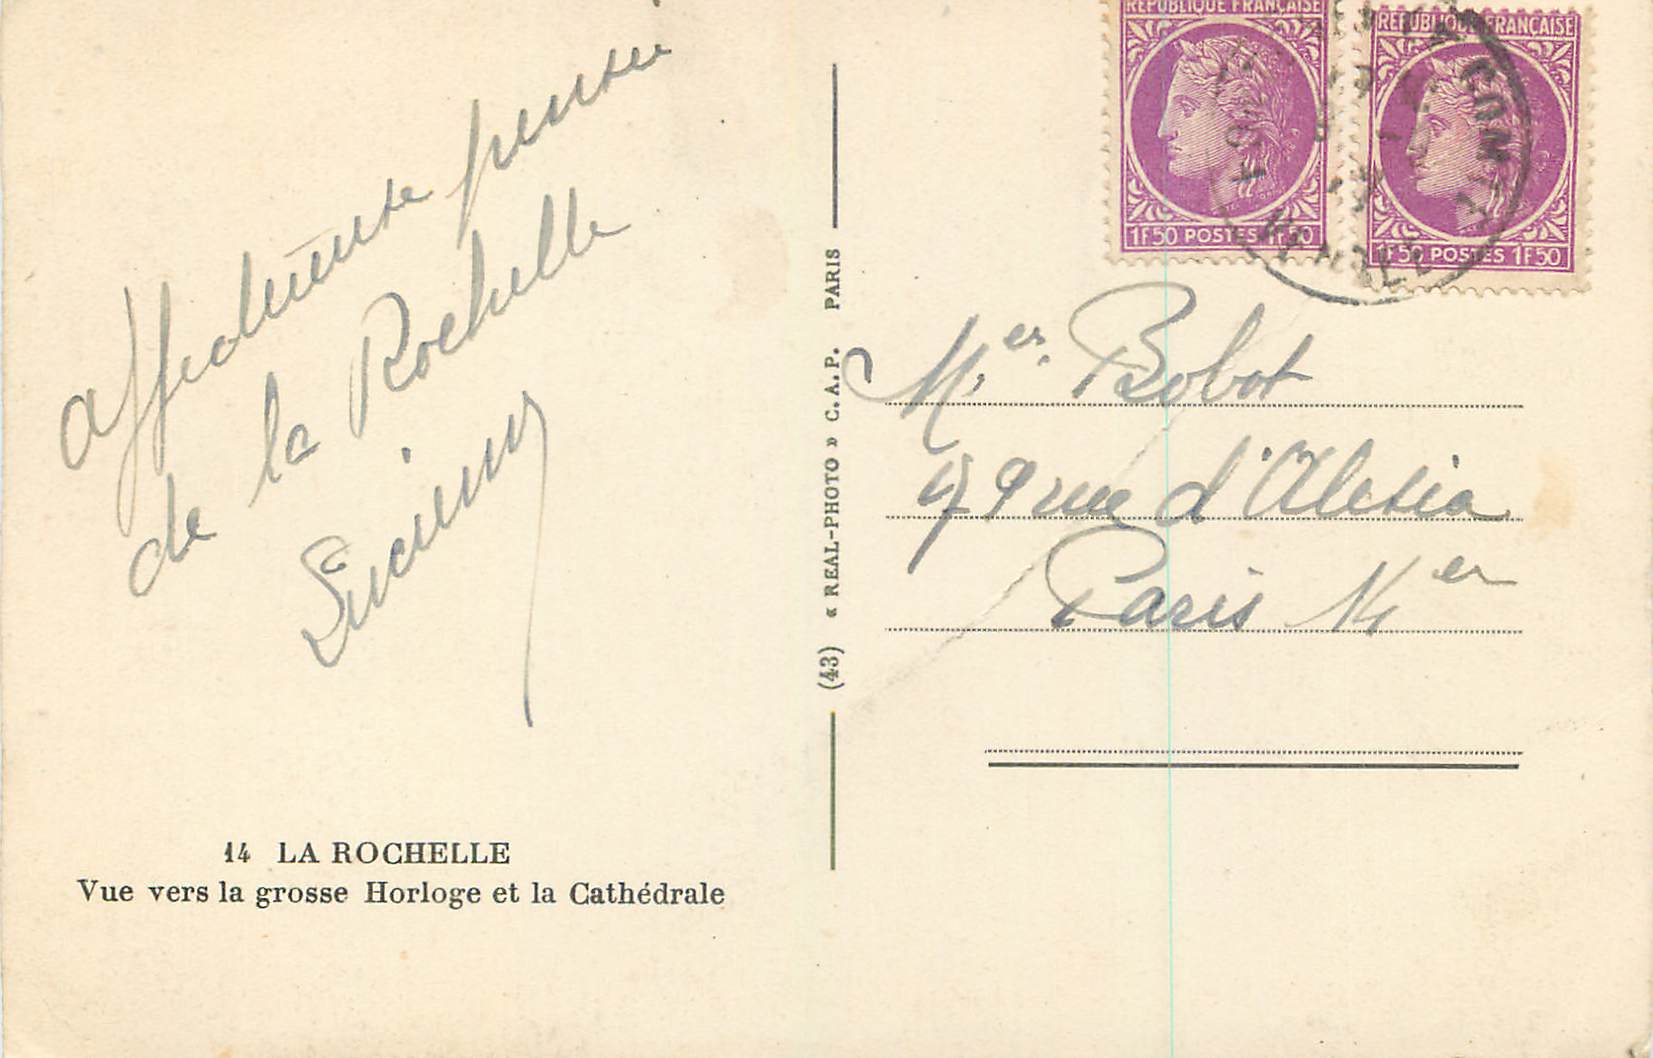 affectueuse pensée
de la Rochelle
Lucienne
14 LA ROCHELLE
Vue vers la grosse Horloge et la Cathédrale
(43) « REAL-PHOTO » C.A.P. PARIS
REPUBLIQUE FRANÇAISE
1F50 POSTES 1F50
REPUBLIQUE FRANÇAISE
1F50 POSTES 1F50
Bobot
79 rue d'Alesia
Paris 14 er